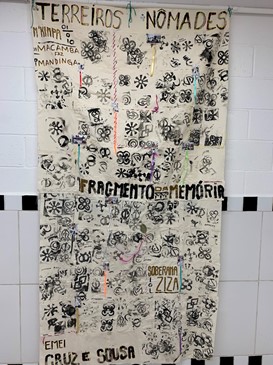 TERREIROS NÔMADES
MACAMBA
FAZ
MANDINGA
FRAGMENTO DA MEMÓRIA
SOBERANA
ZIZA
EMEI
CRUZ E SOUSA